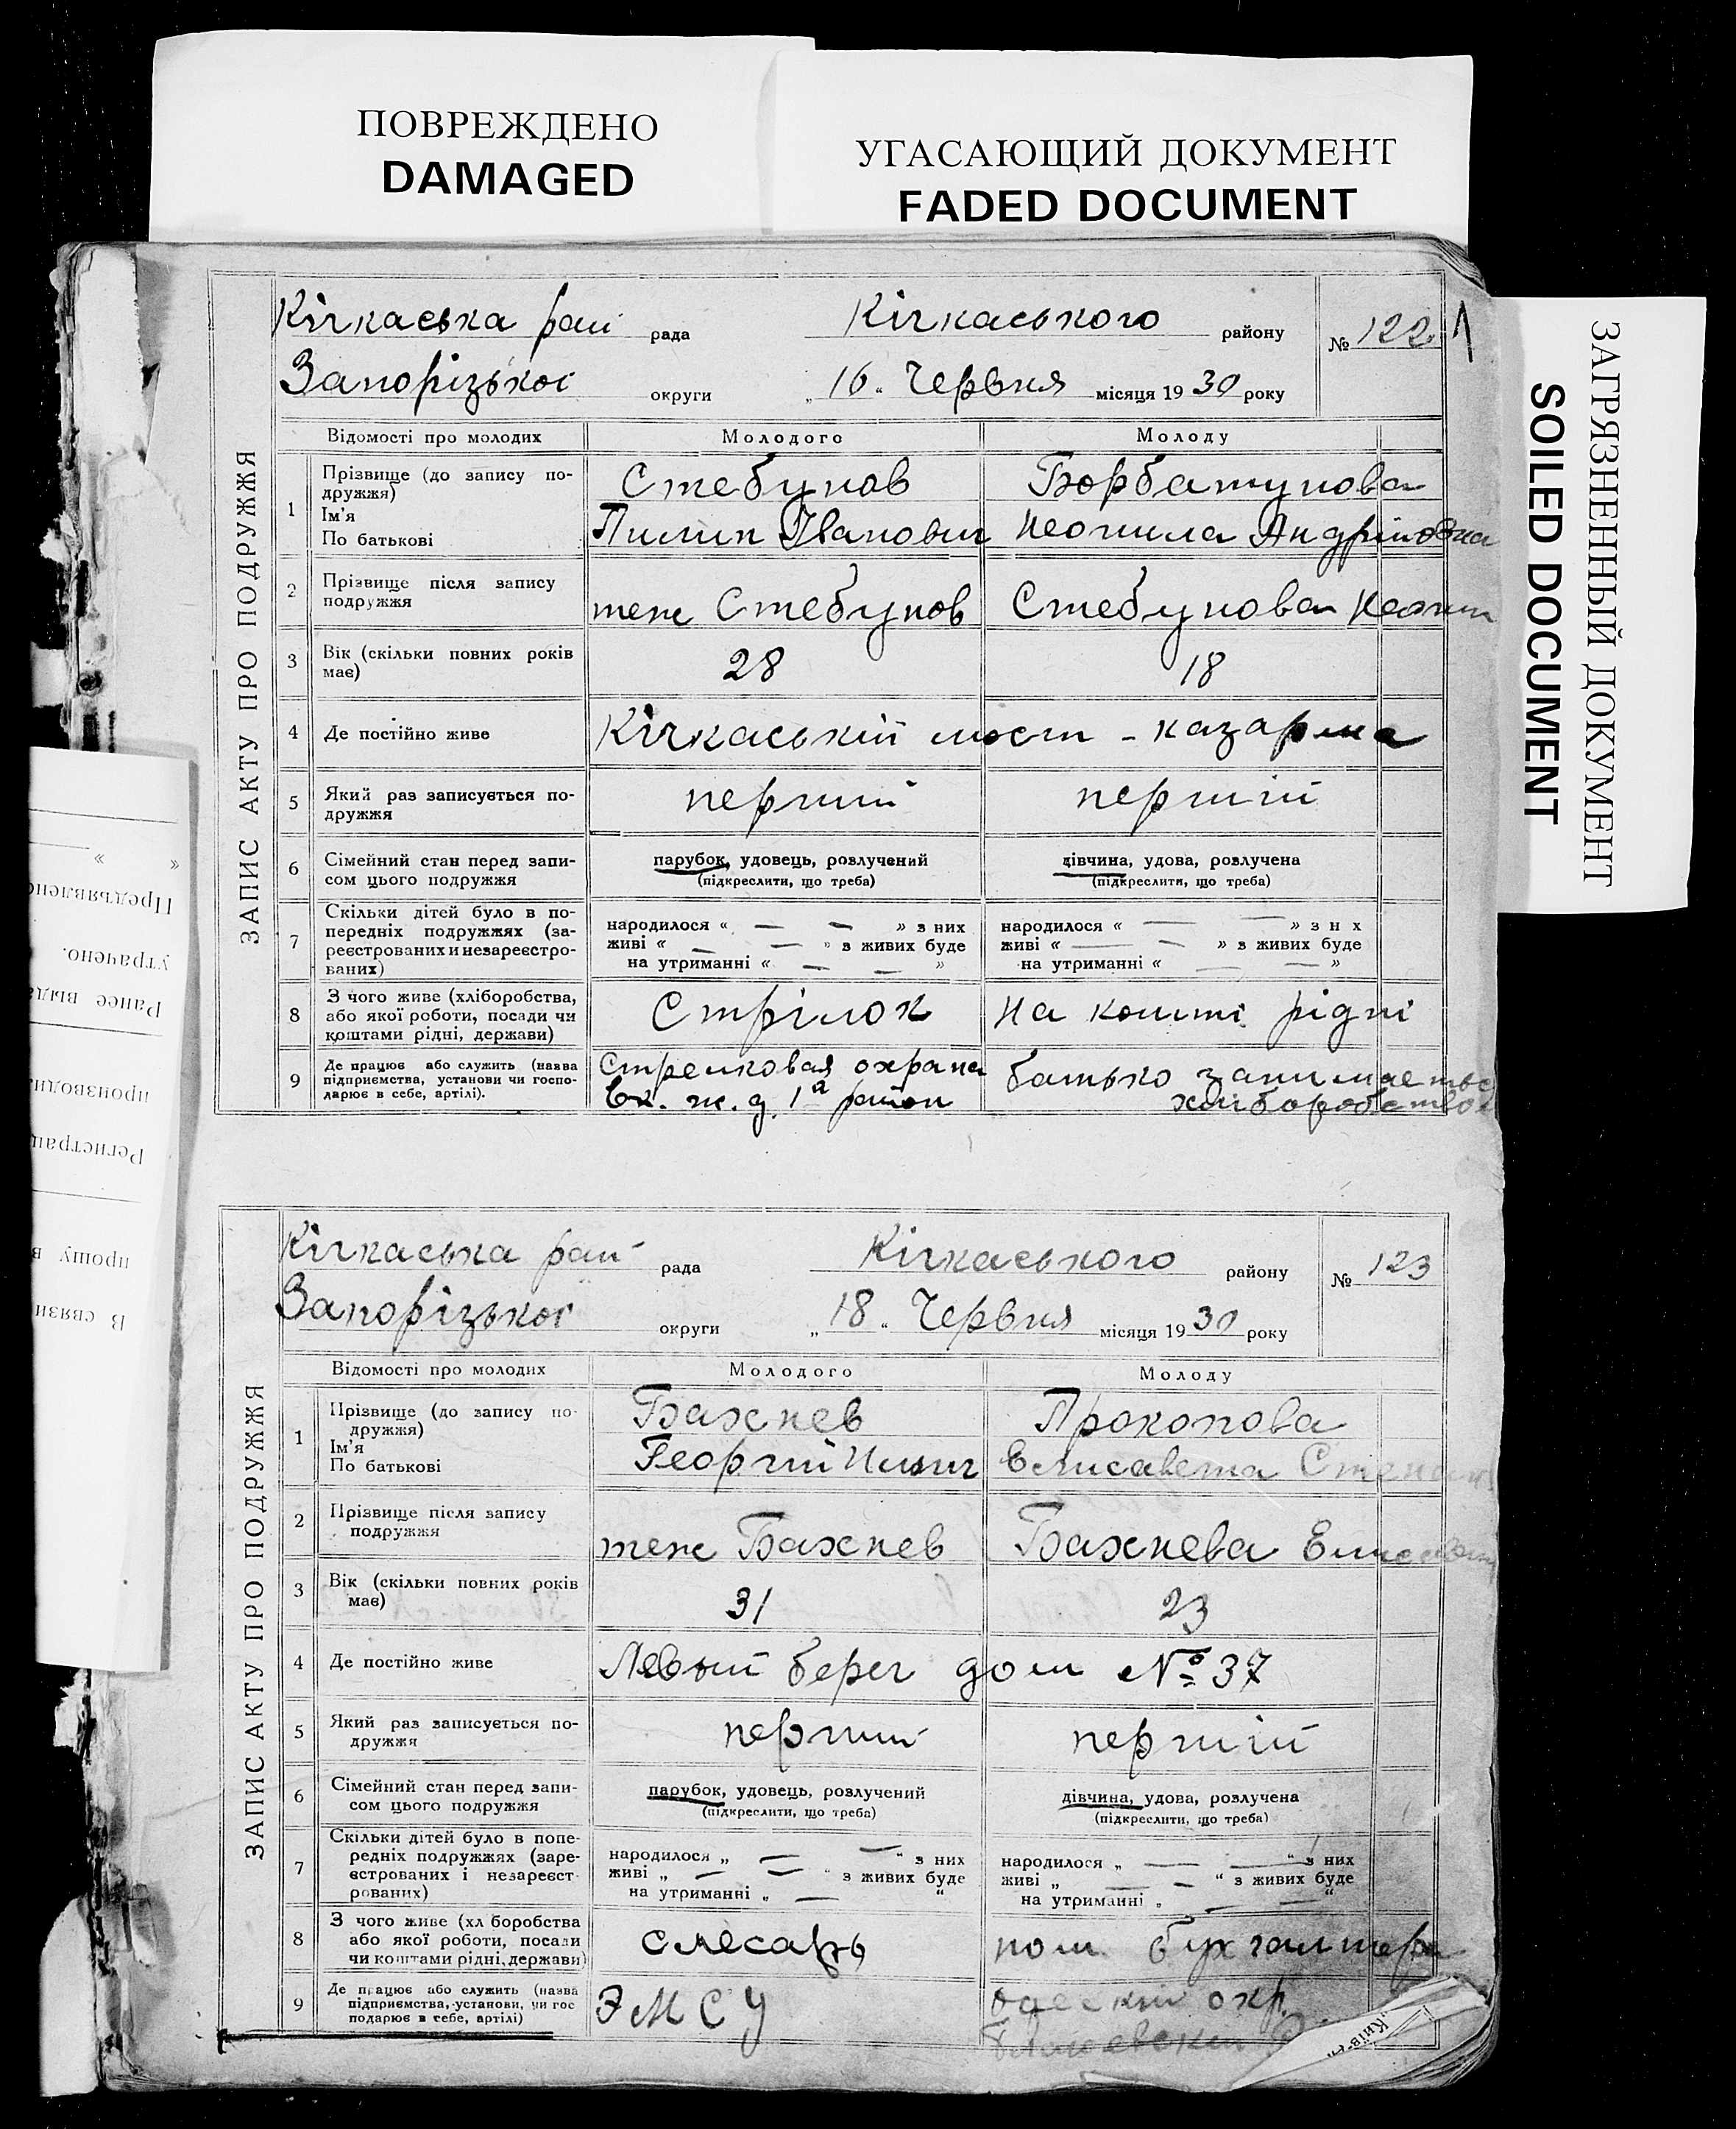 ПОВРЕЖДЕНО
DAMAGED
УГАСАЮЩИЙ ДОКУМЕНТ
FADED DOCUMENT
ЗАГРЯЗНЕННЫЙ ДОКУМЕНТ
SOILED DOCUMENT
ЗАПИС АКТУ ПРО ПОДРУЖЖЯ
Кічкаська рай рада Кічкаського району № 122
Запорізької округи „16“ Червня місяця 1930 року
Відомості про молодих Молодого Молоду
1 Прізвище (до запису по-
дружжя)
Ім'я
По батькові
Стебунов
Пилип Іванович
Андріївна
2 Прізвище після запису
подружжя
теж Стебунов Стебунова
3 Вік (скільки повних років
має)
28 18
4 Де постійно живе Кічкаський мост - казарма
5 Який раз записується по-
дружжя
перший перший
6 Сімейний стан перед запи-
сом цього подружжя
парубок, удовець, розлучений
(підкреслити, що треба)
дівчина, удова, розлучена
(підкреслити, що треба)
7 Скільки дітей було в по-
передніх подружжях (за-
реєстрованих и незареєстро-
ваних)
народилося « — — » з них
живі « — — » з живих буде
на утриманні « — — »
народилося « — — » з н х
живі « — — » з живих буде
на утриманні « — — »
8 З чого живе (хліборобства,
або якої роботи, посади чи
коштами рідні, держави)
Стрілок На кошті рідні
9 Де працює або служить (назва
підприємства, установи чи госпо-
дарює в себе, артілі).
Стрелковая охрана
Ек. ж. д. 1а район
батько занимаеться
хліборобством
ЗАПИС АКТУ ПРО ПОДРУЖЖЯ
Кічкаська рай рада Кічкаського району № 123
Запорізької округи „18“ Червня місяця 1930 року
Відомості про молодих Молодого Молоду
1 Прізвище (до запису по-
дружжя)
Ім'я
По батькові
Бахнев
Георгій Ильич
Прокопова
Елисавета
2 Прізвище після запису
подружжя
теж Бахнев Бахнева
3 Вік (скільки повних років
має)
31 23
4 Де постійно живе Левый берег дом № 37
5 Який раз записується по-
дружжя
перший перший
6 Сімейний стан перед запи-
сом цього подружжя
парубок, удовець, розлучений
(підкреслити, що треба)
дівчина, удова, розлучена
(підкреслити, що треба)
7 Скільки дітей було в попе-
редніх подружжях (заре-
єстрованих і незареєст-
рованих)
народилося „ — — “ з них
живі „ — — “ з живих буде
на утриманні „ — “
народилося „ — — “ з них
живі „ — — “ з живих буде
на утриманні „ — — “
8 З чого живе (хл боробства
або якої роботи, посади
чи коштами рідні, держави)
слесарь пом. бухгалтера
9 Де працює або служить (назва
підприємства, установи, чи гос
подарює в себе, артілі)
ЭМСУ
окр.
Предъявлено
утрачено.
Ранее выда
производи
Регистрац
прошу в
В связи